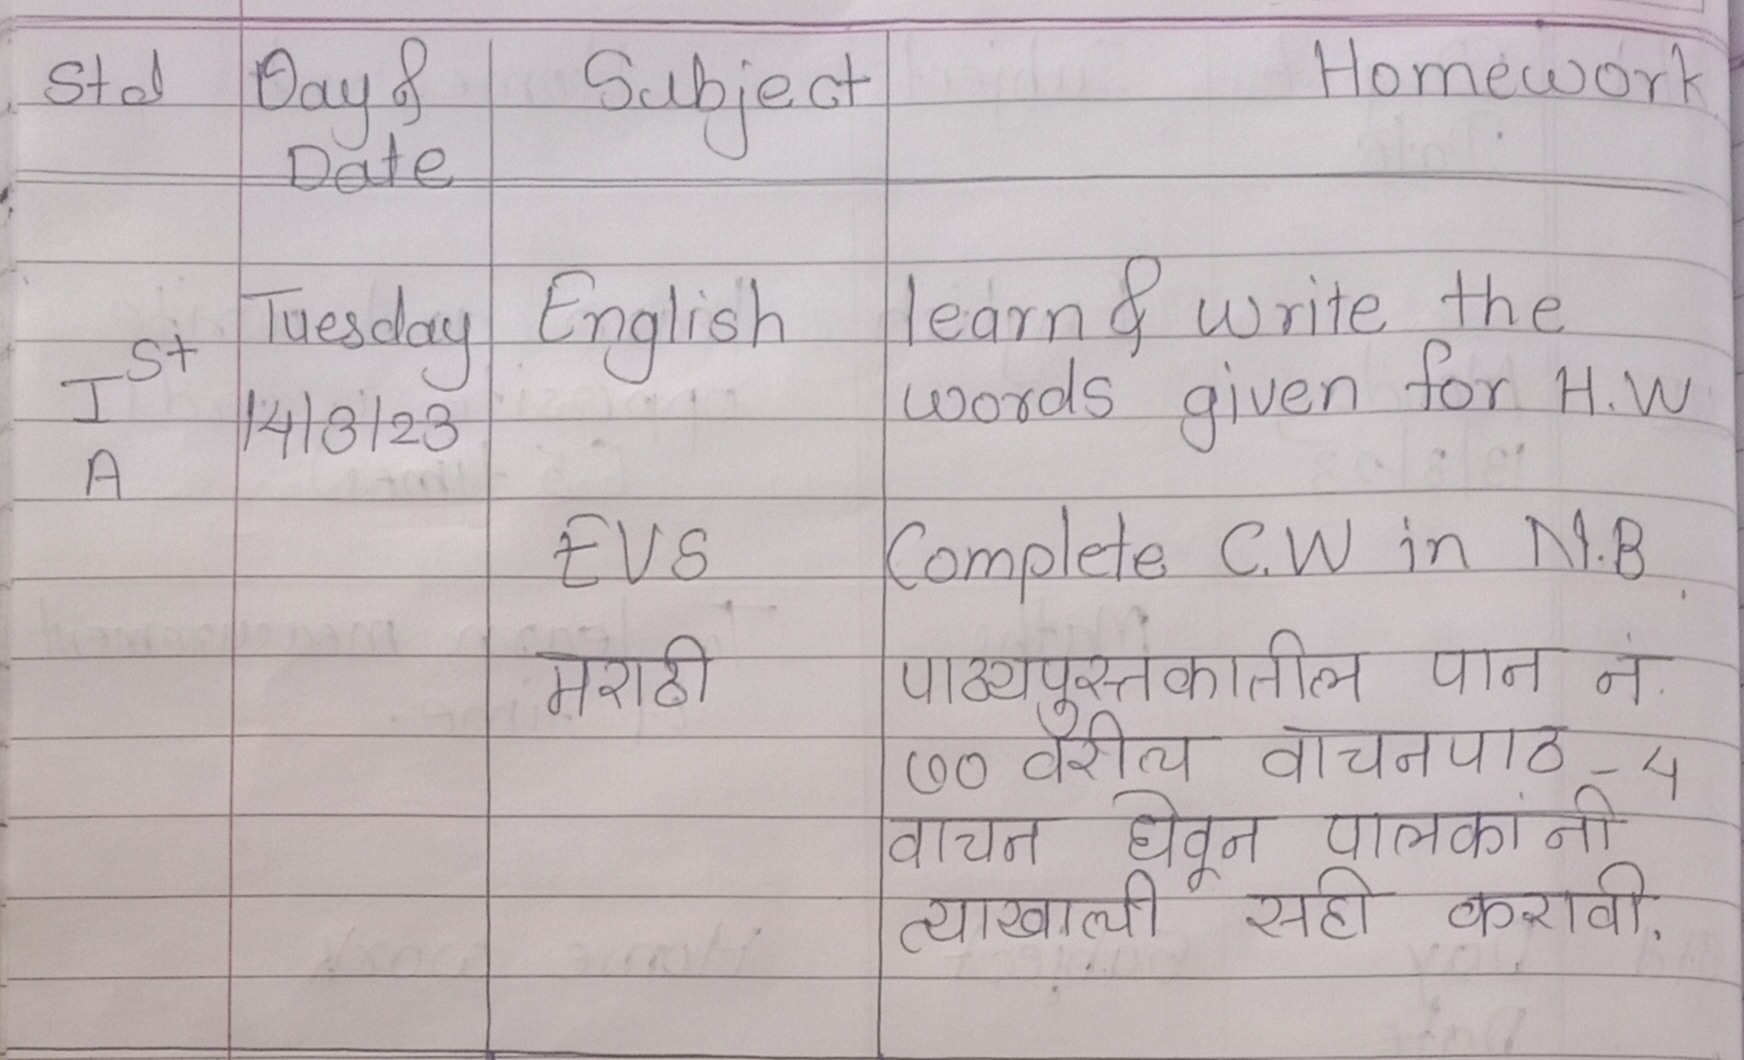 Std Day & Subject Homework
Date
Tuesday English learn & write the
Ist words given for H.W
14/3/23
A
EVS Complete C.W in N.B.
मराठी पाठ्यपुस्तकातील पान नं.
७० वरील वाचनपाठ - ५
वाचन घेवून पालकांनी
त्याखाली सही करावी.